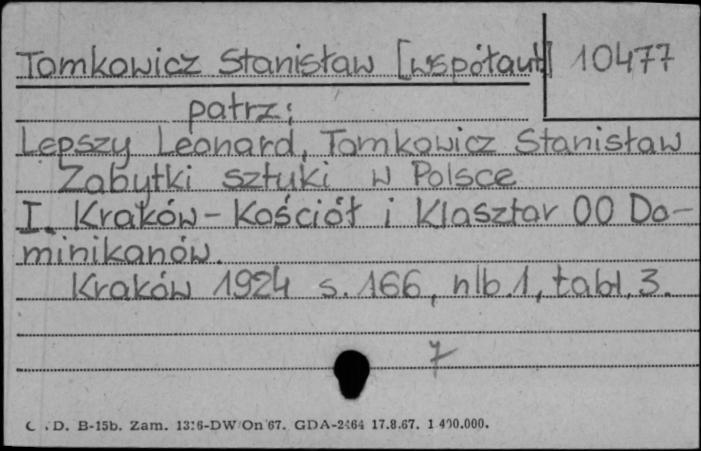 Tomkowicz Stanisław [współaut] 10477
patrz:
Lepszy Leonard, Tomkowicz Stanisław
Zabytki sztuki w Polsce
I. Kraków - Kościół i Klasztor OO Do-
minikanów.
Kraków 1924 s. 166, nlb. 1, tabl. 3.
7
D. B-15b. Zam. 1316-DW/On/67. GDA-2464 17.8.67. 1.400.000.